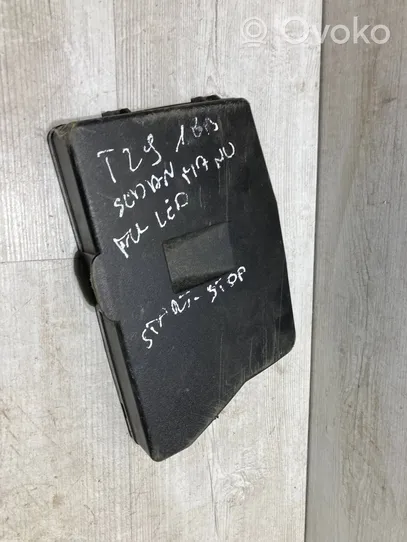 Ovoko
T29 1.6B
SEDAN MANU
FULL LED
START-STOP